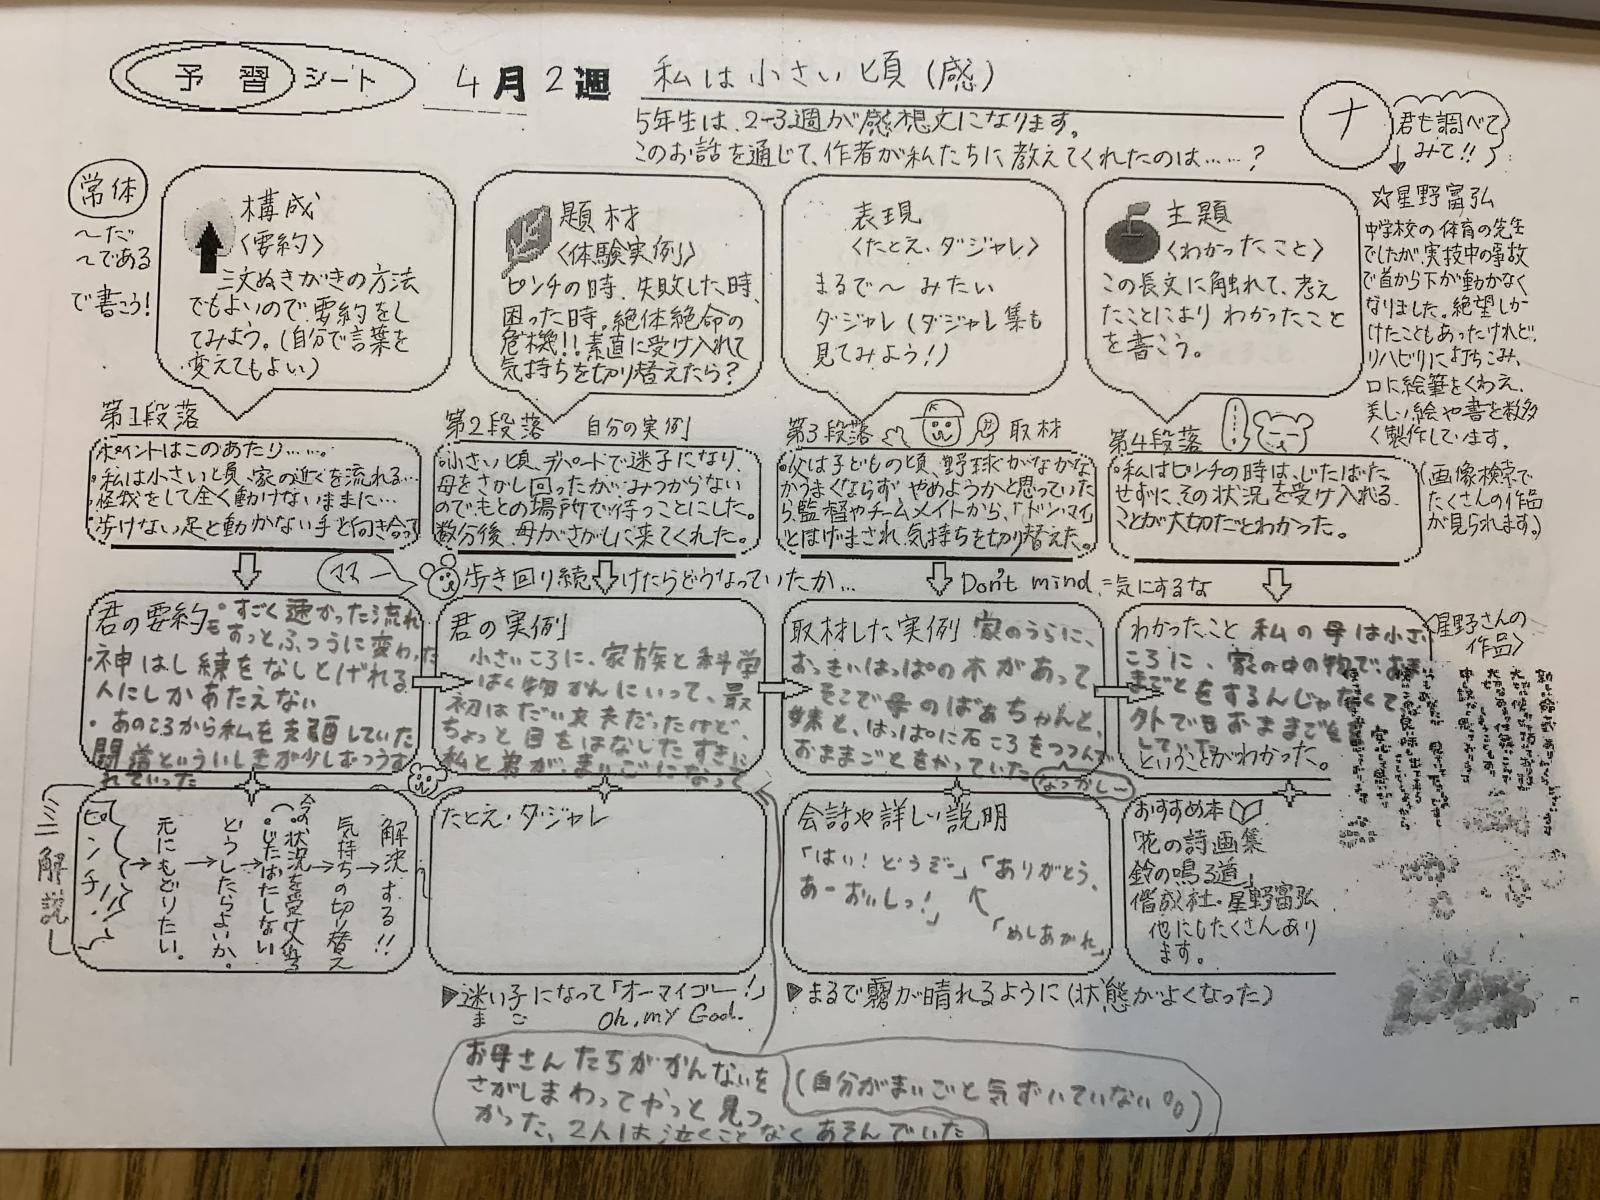 予習シート
4月2週
私は小さい頃(感)
5年生は、2-3週が感想文になります。
このお話を通じて、作者が私たちに教えてくれたのは……?
ナ
君も調べて
みて!!
常体
～だ
～である
で書こう!
構成
〈要約〉
三文ぬきがきの方法
でもよいので、要約をし
てみよう。(自分で言葉を
変えてもよい)
題材
〈体験実例〉
ピンチの時、失敗した時、
困った時。絶体絶命の
危機!!素直に受け入れて
気持ちを切り替えたら?
表現
〈たとえ・ダジャレ〉
まるで～みたい
ダジャレ(ダジャレ集も
見てみよう!)
主題
〈わかったこと〉
この長文に触れて、考え
たことによりわかったこと
を書こう。
☆星野富弘
中学校の体育の先生
でしたが、実技中の事故
で首から下が動かなく
なりました。絶望しか
けたこともあったけれど、
リハビリに打ちこみ、
口に絵筆をくわえ、
美しい絵や書を数多
く製作しています。
(画像検索で
たくさんの作品
が見られます。)
第1段落
ポイントはこのあたり……。
・私は小さい頃、家の近くを流れる…
・怪我をして全く動けないままに…
・歩けない足と動かない手と向き合っ
第2段落 自分の実例
・小さい頃、デパートで迷子になり、
母をさがし回ったが、みつからない
のでもとの場所で待つことにした。
数分後、母がさがしに来てくれた。
第3段落 取材
・父は子どもの頃、野球がなかな
かうまくならず やめようかと思っていた
ら、監督やチームメイトから、「ドンマイ」
とはげまされ、気持ちを切り替えた。
第4段落
・私はピンチの時は、じたばた
せずに、その状況を受け入れる
ことが大切だとわかった。
ママー
歩き回り続けたらどうなっていたか…
Don't mind=気にするな
君の要約 ・すごく速かった流れ
もすっとふつうに変わった
・神はし練をなしとげれる
人にしかあたえない
・あのころから私を支配していた
れていった
君の実例
小さいころに、家族と科学
はく物かんにいって、最
初はだい丈夫だったけど、
ちょっと目をはなしたすきに
私と弟が、まいごになって
取材した実例 家のうらに、
おっきいはっぱの木があって
そこで母のばあちゃんと、
妹と、はっぱに石ころをつつんで
おままごとをやっていた
なつかしー
わかったこと 私の母は小さい
ころに、家の中の物で、おま
まごとをするんじゃなくて
外で おままごとを
して
ということがわかった。
〈星野さんの
作品〉
ミニ解説
ピンチ!!
→元にもどりたい。
→どうしたらよいか。
→・じたばたしない
・今の状況を受け入れる
→気持ちの切り替え
→解決する!!
たとえ・ダジャレ
▶迷い子になって「オーマイゴー!」
まご Oh, my God.
会話や詳しい説明
「はい!どうぞー」「ありがとう、
あーおいしっ!」
「めしあがれ」
▶まるで霧が晴れるように(状態がよくなった)
おすすめ本
「花の詩画集
鈴の鳴る道」
偕成社・星野富弘
他にもたくさんあり
ます。
お母さんたちがかんないを
さがしまわってやっと見つ
かった、2人は泣くことなくあそんでいた
(自分がまいごと気ずいていない%)